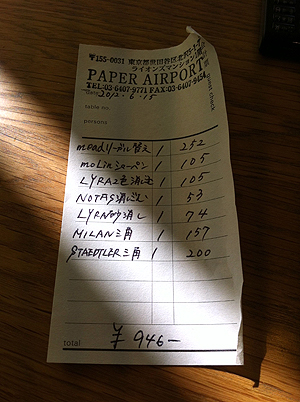 〒155-0031 東京都世田谷区北沢
ライオンズマンション
PAPER AIRPORT
TEL:03-6407-9771 FAX:03-6407-9454
date 2012.6.15
guest check
table no.
persons
meadリーガル替え 1 252
molinシャーペン 1 105
LYRA2色消しゴム 1 105
NOTAS消しゴム 1 53
LYRA砂消し 1 74
MILAN三角 1 157
STAEDTLER三角 1 200
total ¥ 946-